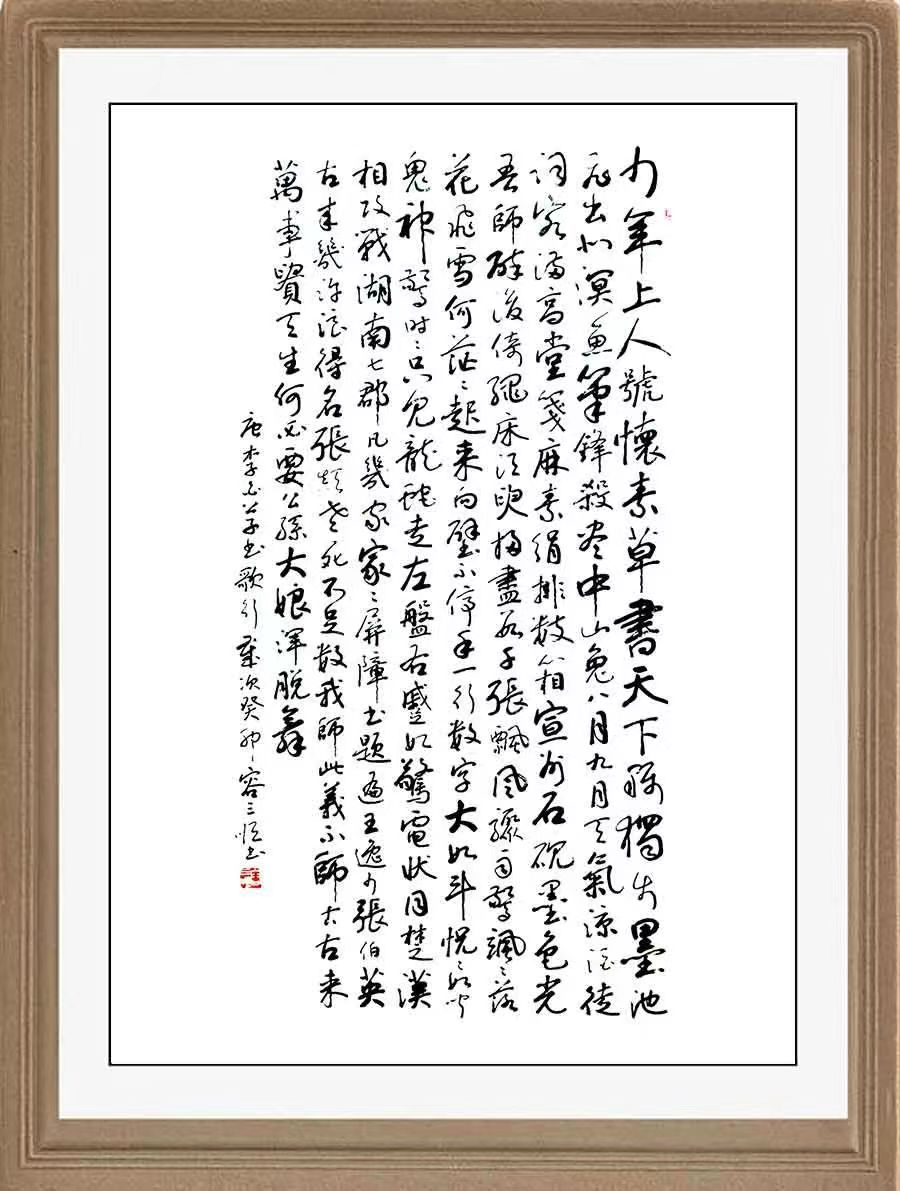 少年上人號懷素草書天下稱獨步墨池
飛出北溟魚筆鋒殺尽中山兔八月九月天氣涼酒徒
詞客滿高堂箋麻素絹排数箱宣州石硯墨色光
吾師醉後倚繩床須臾掃盡数千張飄風驟雨驚颯々落
花飛雪何茫々起來向壁不停手一行数字大如斗怳々如聞
鬼神驚時々只見龍蛇走左盤右蹙如驚電狀同楚漢
相攻戰湖南七郡凡幾家家々屏障書題遍王逸少張伯英
古來幾許浪得名張顛老死不足数我師此義不師古古来
萬事貴天生何必要公孫大娘渾脫舞
唐李白草書歌行歲次癸卯容三恒書